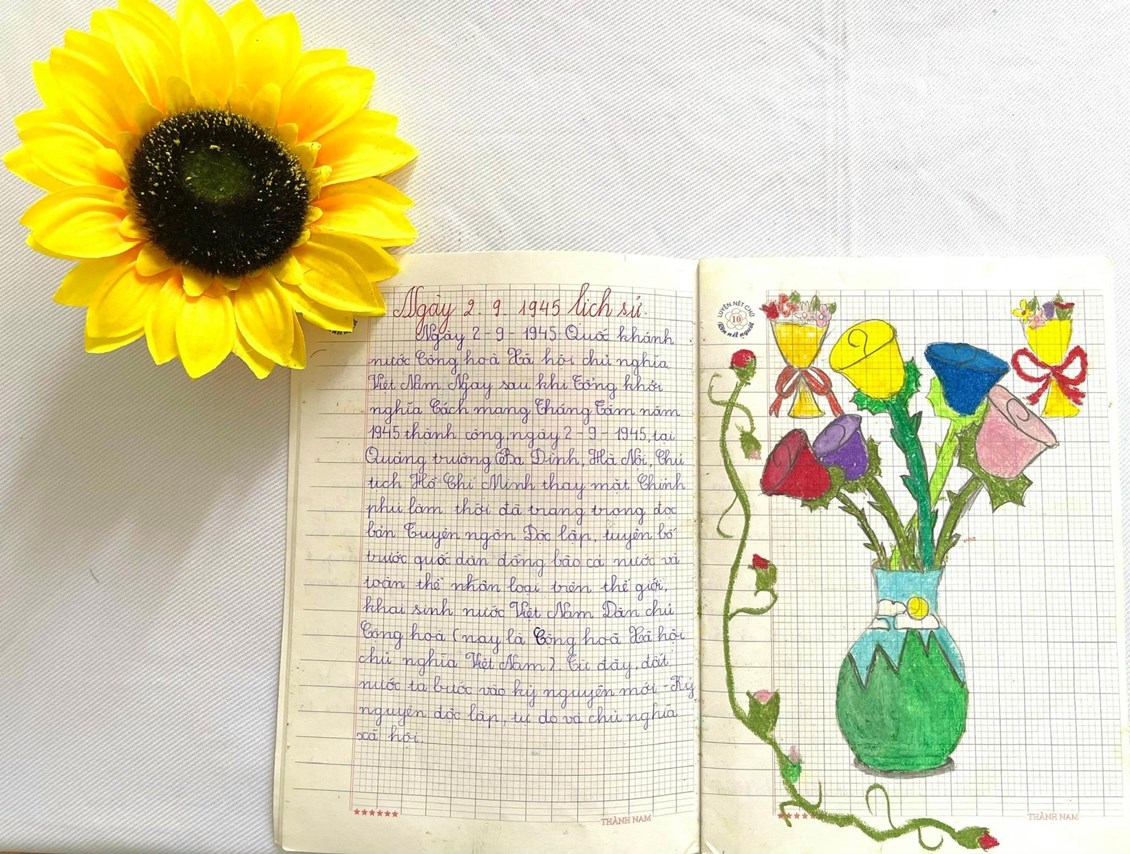 Ngày 2. 9. 1945 lịch sử.
Ngày 2 - 9 - 1945. Quốc khánh
nước Cộng hoà Xã hội chủ nghĩa
Việt Nam Ngay sau khi Tổng khởi
nghĩa Cách mạng Tháng Tám năm
1945 thành công, ngày 2 - 9 - 1945, tại
Quảng trường Ba Đình, Hà Nội, Chủ
tịch Hồ Chí Minh thay mặt Chính
phủ lâm thời đã trang trọng đọc
bản Tuyên ngôn Độc lập, tuyên bố
trước quốc dân đồng bào cả nước và
toàn thể nhân loại trên thế giới,
khai sinh nước Việt Nam Dân chủ
Cộng hoà (nay là Cộng hoà Xã hội
chủ nghĩa Việt Nam). Từ đây, đất
nước ta bước vào kỷ nguyên mới - Kỷ
nguyên độc lập, tự do và chủ nghĩa
xã hội.
THÀNH NAM
LUYỆN NÉT CHỮ
10
Rèn nết người
THÀNH NAM